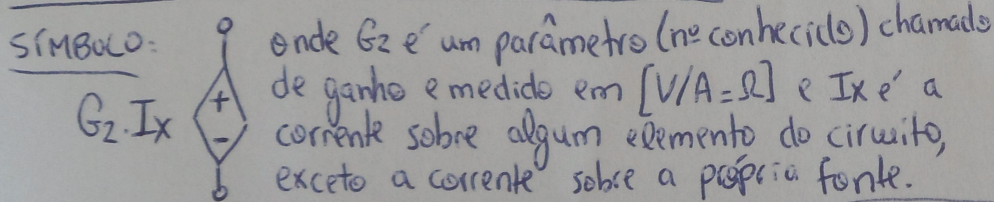 SÍMBOLO: onde G2 é um parâmetro (nº conhecido) chamado
de ganho e medido em [V/A=Ω] e Ix é a
G2.Ix + - corrente sobre algum elemento do circuito,
exceto a corrente sobre a própria fonte.